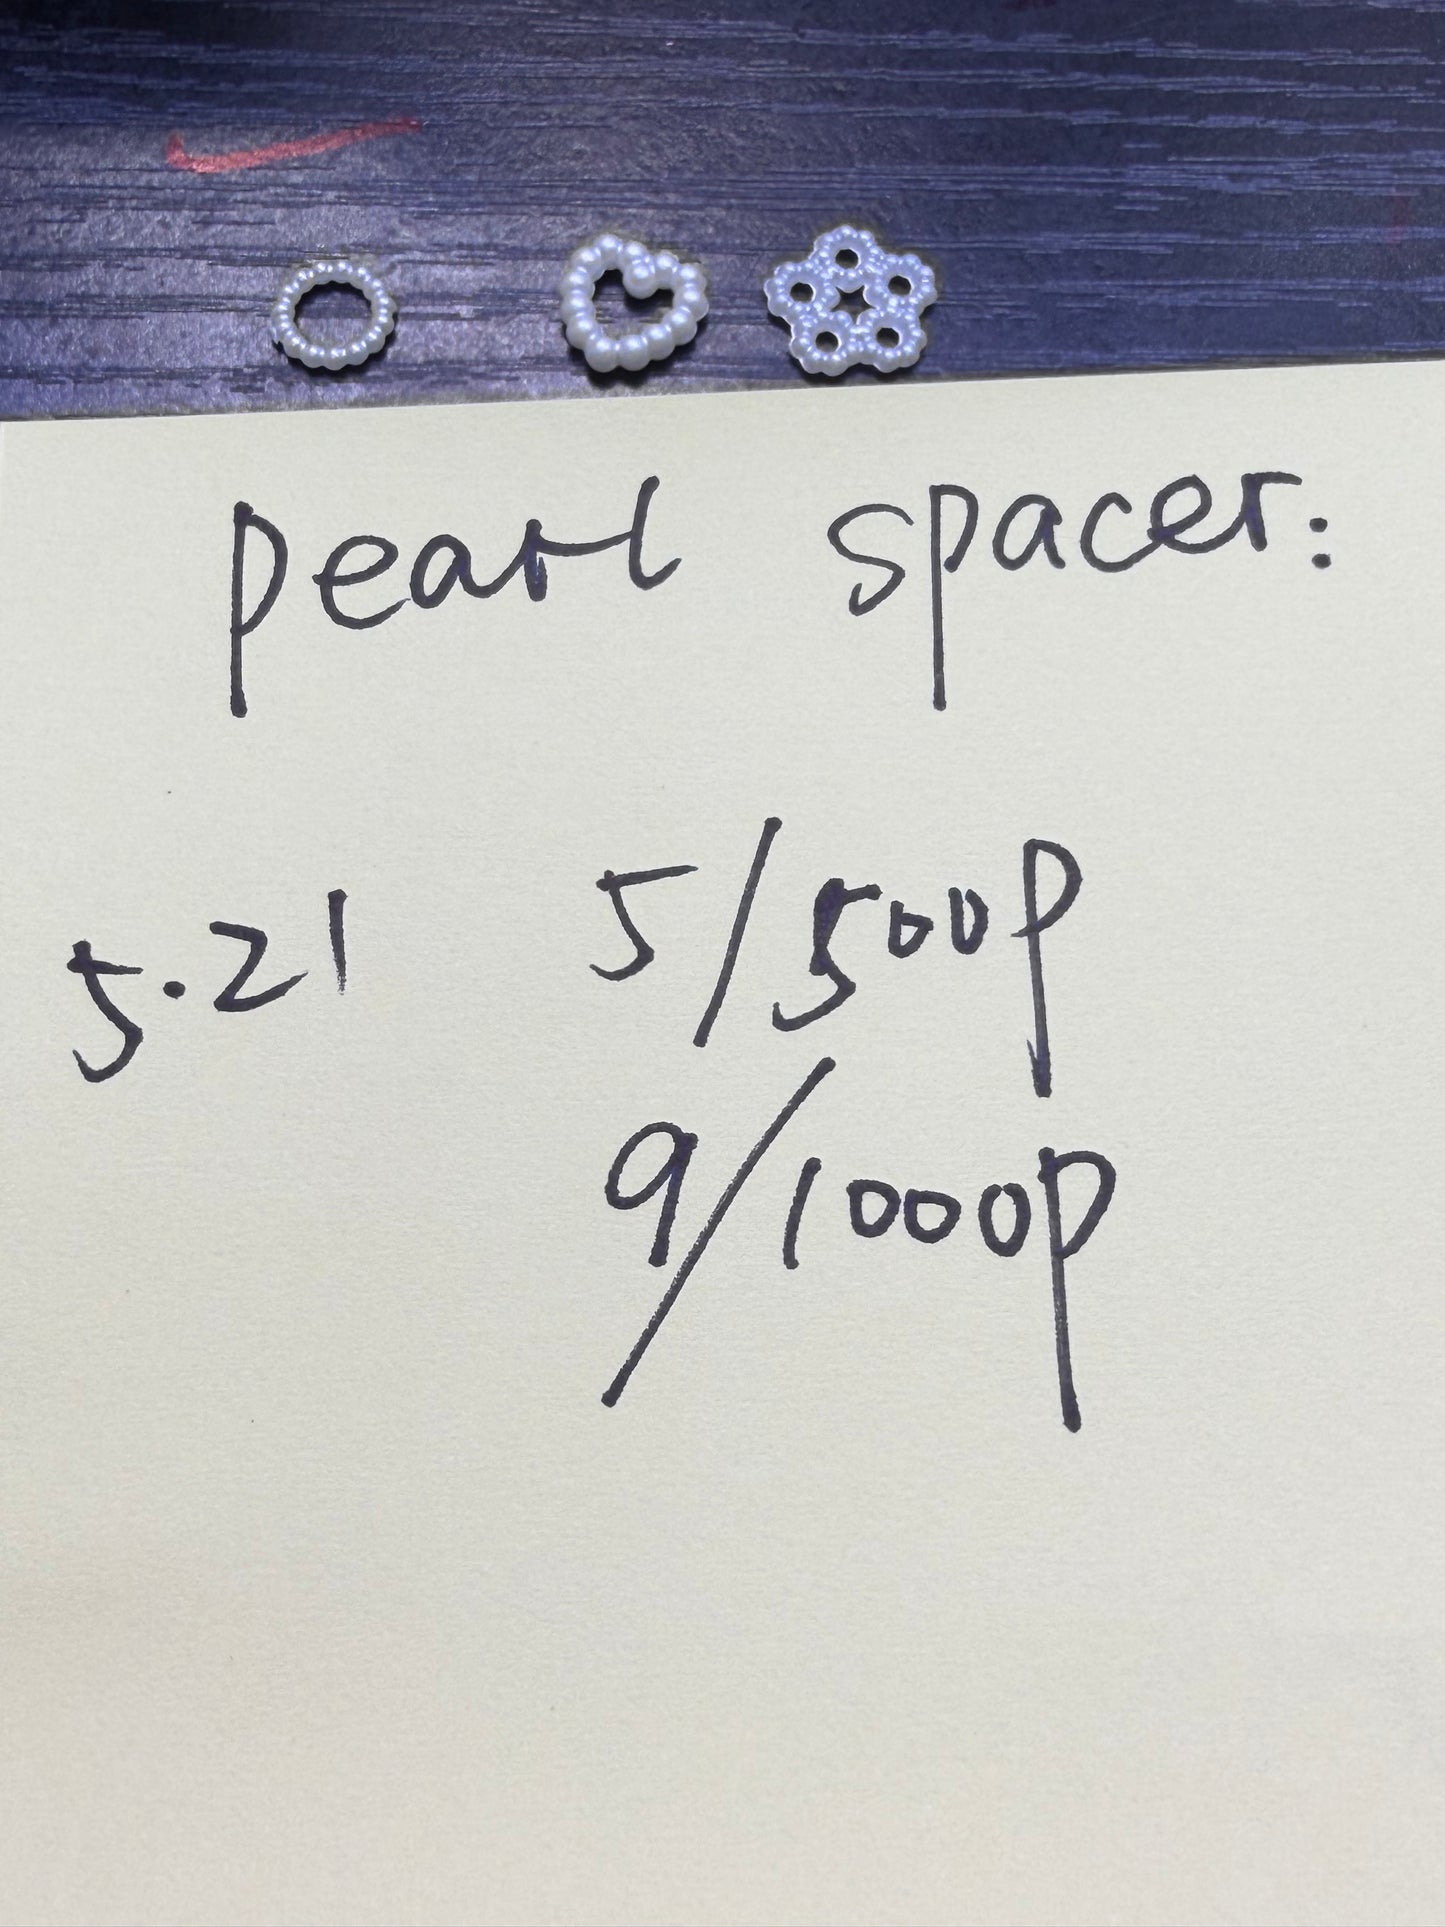 pearl spacer:
5.21 5/500p
9/1000p